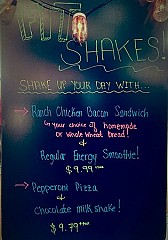 FIT
SHAKES!
SHAKE UP YOUR DAY WITH...
→ Ranch Chicken Bacon Sandwich
(on your choice of homemade
or Whole Wheat Bread!)
&
Regular Energy Smoothie!
$9.99
→ Pepperoni Pizza
&
Chocolate milkshake!
$9.79